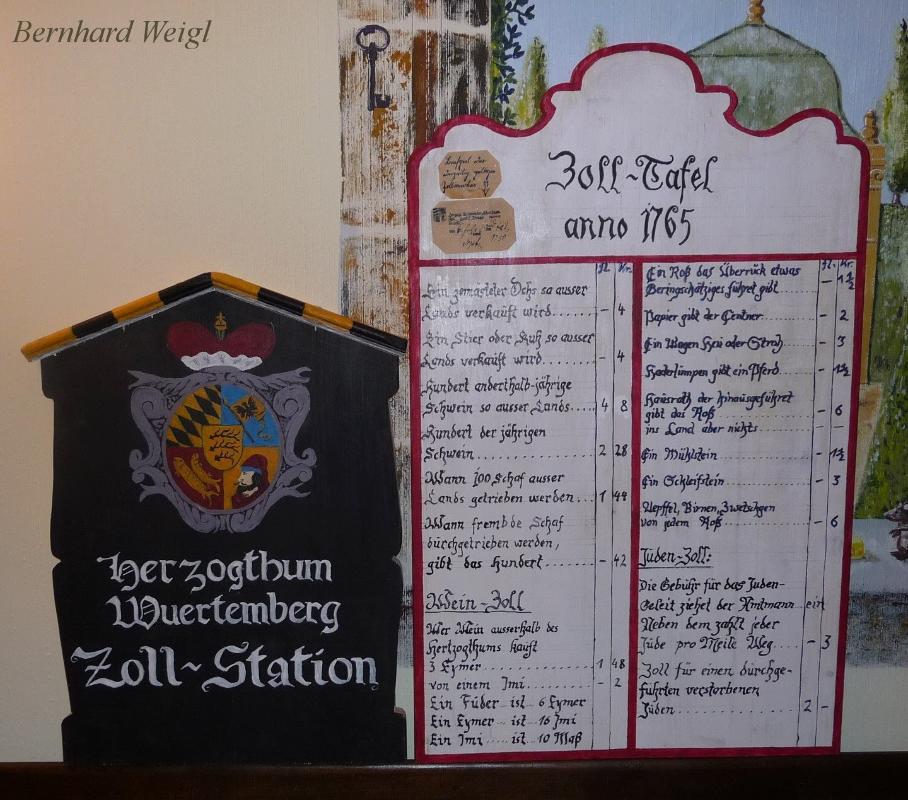 Bernhard Weigl
Herzogthum
Wuertemberg
Zoll-Station
Zoll-Tafel
anno 1765
fl. Kr.
Ein gemästeter Ochs so ausser
Lands verkauft wird..... – 4
Ein Stier oder Kuh so ausser
Lands verkauft wird..... – 4
Hundert anderthalb-jährige
Schwein so ausser Lands.... 4 8
Hundert der jährigen
Schwein ......... 2 28
Wann 100 Schaf ausser
Lands getrieben werden... 1 44
Wann frembde Schaf
durchgetrieben werden,
gibt das Hundert ......... – 42
Wein-Zoll
Wer Wein ausserhalb des
Hertzogthums kauft
3 Eymer ............ 1 48
von einem Imi ......... – 2
Ein Füder ist 6 Eymer
Ein Eymer ist 16 Imi
Ein Imi ist 10 Maß
fl. Kr.
Ein Roß das Überrück etwas
Geringschätziges führet gibt – 1½
Papier gibt der Centner ..... – 2
Ein Wagen Heu oder Stroh ..... – 3
Haderlumpen gibt ein Pferd ..... – 1½
Hausrath der hinausgeführet
gibt das Roß ......... – 6
ins Land aber nichts ..... – –
Ein Mühlstein ......... – 1½
Ein Schleifstein ......... – 3
Aepffel, Birnen, Zwetschgen
von jedem Roß ......... – 6
Juden-Zoll:
Die Gebühr für das Juden-
Geleit ziehet der Amtmann ein
Neben dem zahlt jeder
Jude pro Meile Weg ..... – 3
Zoll für einen durchge-
führten verstorbenen
Juden ............ 2 –